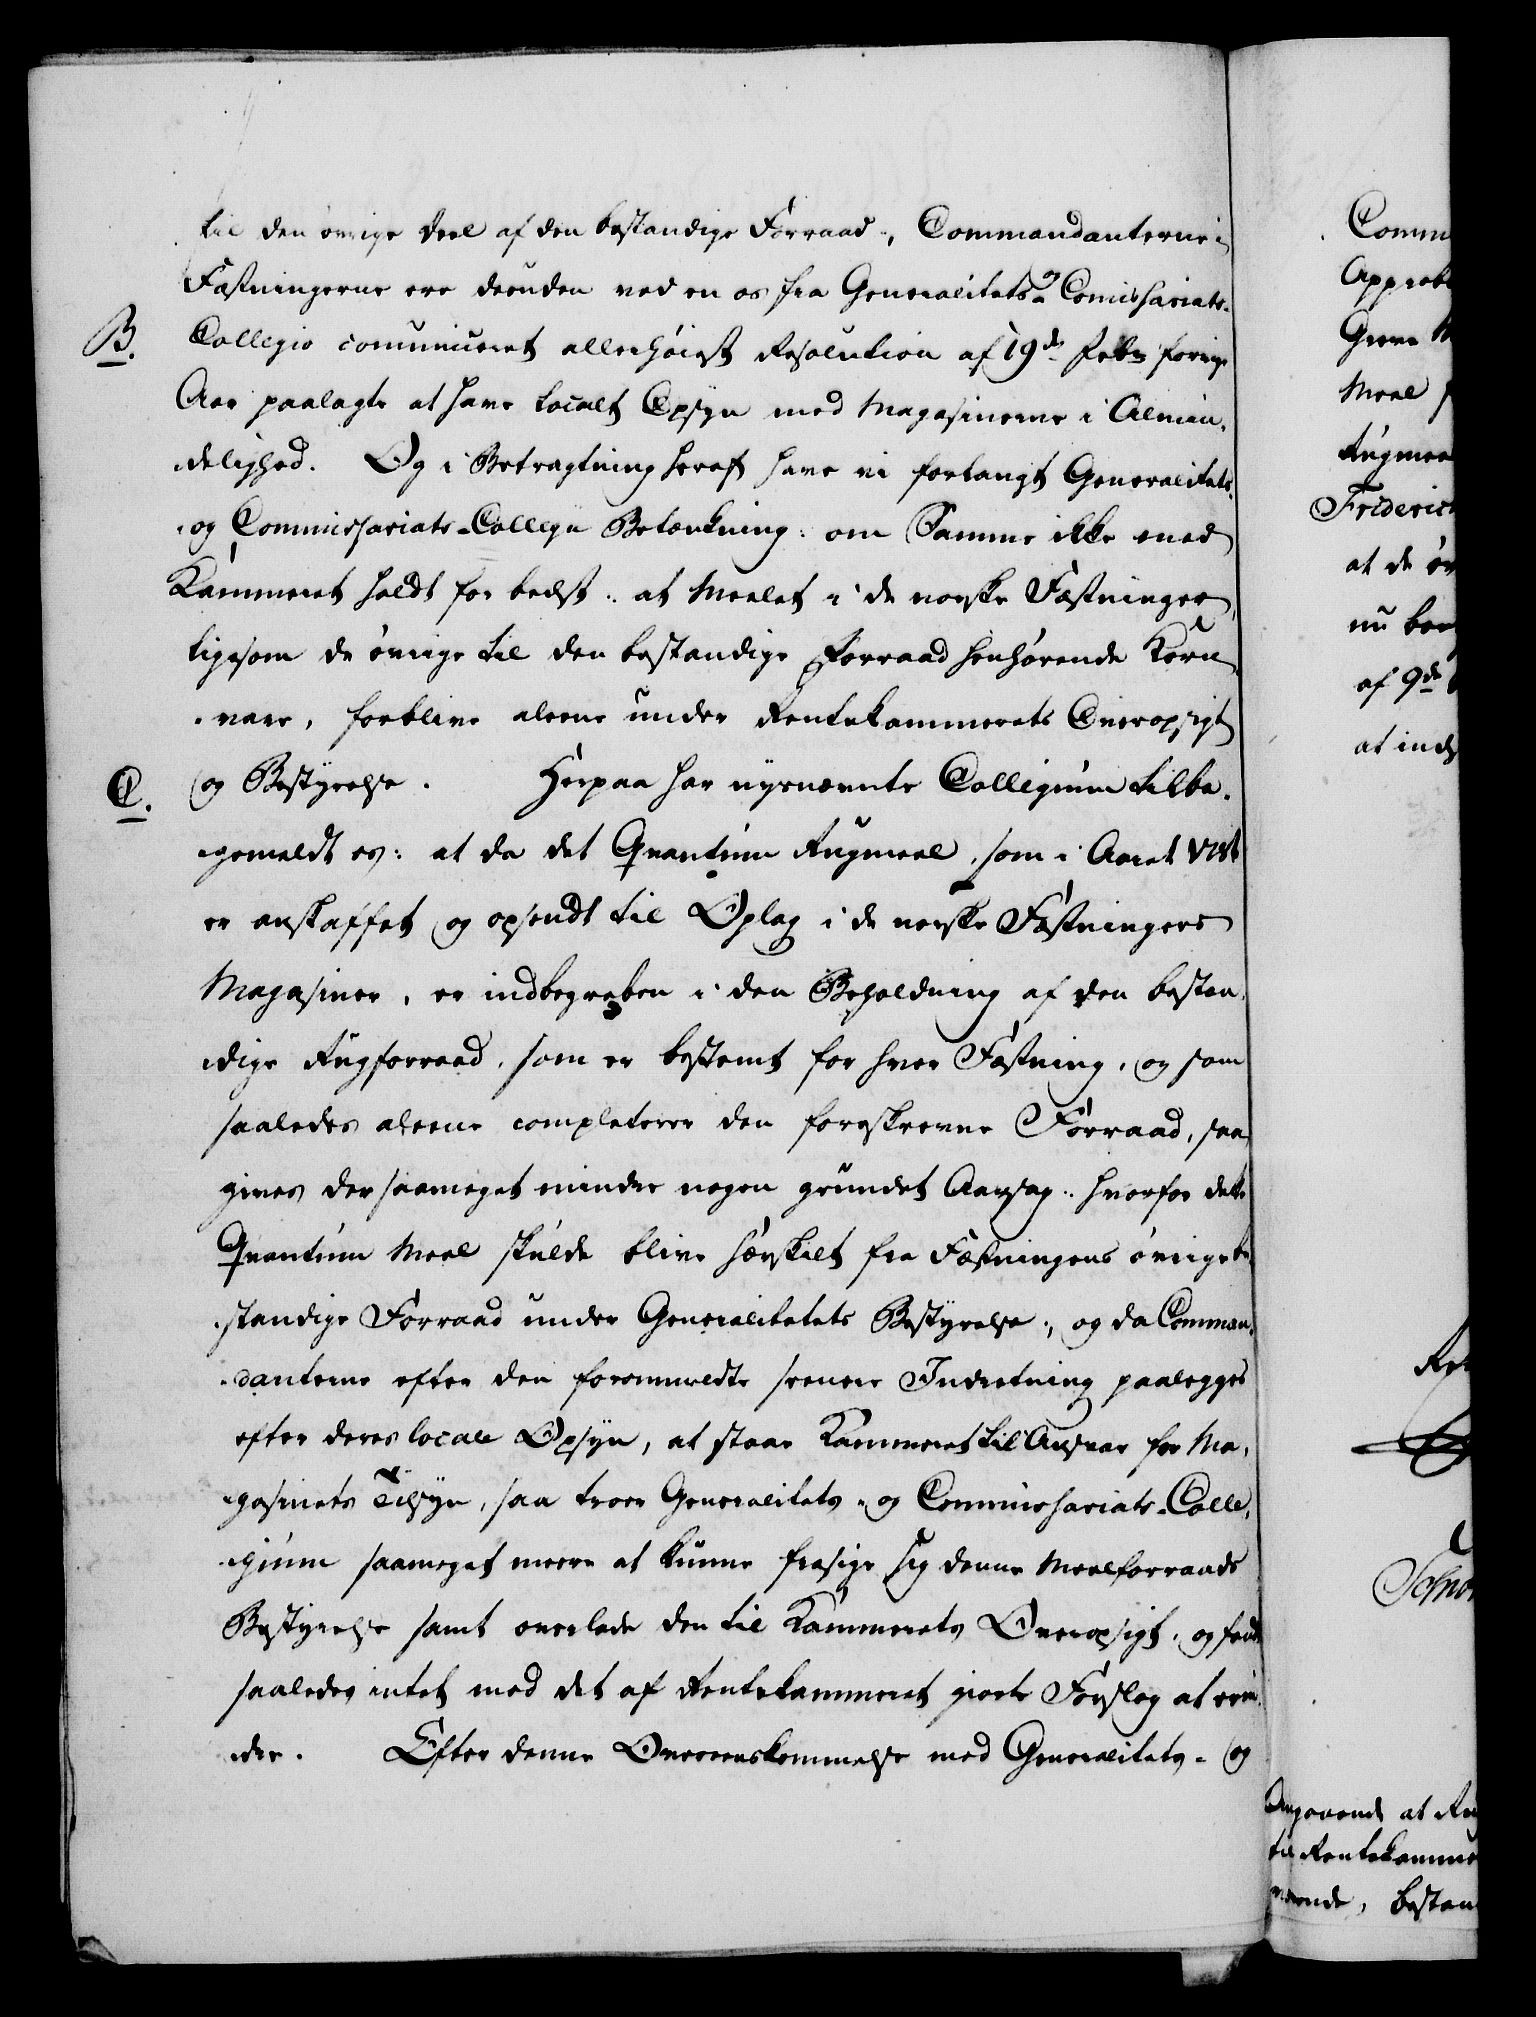 til den øvrige Deel af den bestandige Forraad, Commandanterne i
Fæstningerne ere desuden ved en os fra Generalitets og Comissariats-
B. Collegio comuniceret allerhøiest Resolution af 19de Febr forrige
Aar paalagte at have localt Opsyn med Magasinerne i Almin-
delighed. Og i Betragtning heraf have vi forlangt Generalitets-
og Commissariats-Collegii Betænkning: om Samme ikke med
Kammeret holdt for bedst: at Meelet i de norske Fæstninger,
ligesom de øvrige til den bestandige Forraad henhørende Korn-
vare, forblive aleene under Rentekammerets Overopsigt
C. og Bestyrelse. Herpaa har nysnævnte Collegium tilba-
gemeldt os: at da det Quantum Rugmeel, som i Aaret
er anskaffet og opsendt til Oplag i de norske Fæstningers
Magasiner, er indbegreben i den Beholdning af den bestan-
dige Rugforraad, som er bestemt for hver Fæstning, og som
saaledes aleene completerer den foreskrevne Forraad, saa
gives der saameget mindre nogen grundet Aarsag: hvorfor dette
Quantum Meel skulde blive særskilt fra Fæstningens øvrige be-
standige Forraad under Generalitetets Bestyrelse, og da Comman-
danterne efter den forommeldte seenere Indretning paalegges
efter deres locale Opsyn, at staae Kammeret til Ansvar for Ma-
gasinets Tilsyn, saa troer Generalitets- og Commissariats-Colle-
gium saameget meere at kunne frasige sig denne Meelforraads
Bestyrelse samt overlade den til Kammerets Overopsigt, og fandt
saaledes intet med det af Rentekammeret giorte Forslag at erin-
dre. Efter denne Overeenskommelse med Generalitets- og
Comm
Approb
Grve
Meel
Rugmee
Friderich
at de øv
nu
af 9de
at inds
Angaaende at Ru
til Rentekamme
bestan